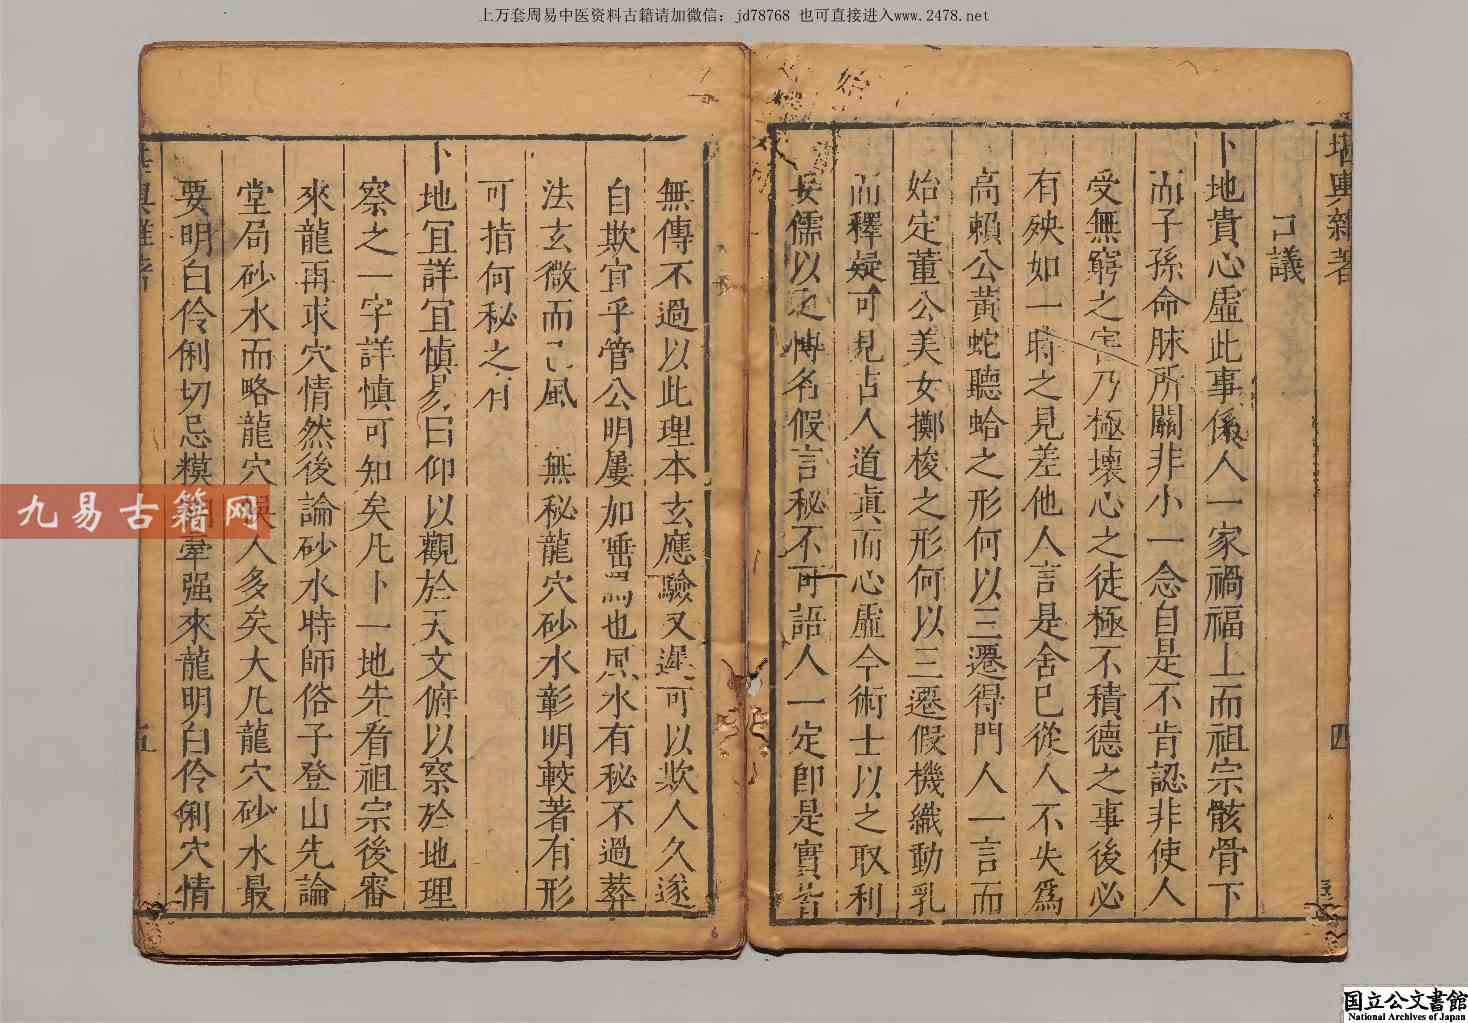 上万套周易中医资料古籍请加微信：jd78768 也可直接进入www.2478.net
堪輿雜著
四
口議
卜地貴心虛此事係人一家禍福上而祖宗骸骨下
而子孫命脉所關非小一念自是不肯認非使人
受無窮之害乃極壞心之徒極不積德之事後必
有殃如一時之見差他人言是舍已從人不失爲
高賴公黃蛇聽蛤之形何以三遷得門人一言而
始定董公美女擲梭之形何以三遷假機織動乳
而釋疑可見古人道眞而心虛今術士以之取利
妄儒以之博名假言秘不可語人一定卽是實昔
無傳不過以此理本玄應驗又遲可以欺人久遂
自欺宜乎管公明屢加唾罵也風水有秘不過葬
法玄微而已風 無秘龍穴砂水彰明較著有形
可指何秘之有
卜地宜詳宜慎易曰仰以觀於天文俯以察於地理
察之一字詳慎可知矣凡卜一地先看祖宗後審
來龍再求穴情然後論砂水時師俗子登山先論
堂局砂水而略龍穴誤人多矣大凡龍穴砂水最
要明白伶俐切忌糢 牽强來龍明白伶俐穴情
輿雜著
五
6
九易古籍网
国立公文書館
National Archives of Japan